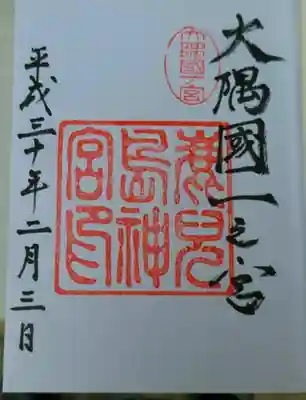 大隅國一之宮
大隅國一宮
鹿兒
島神
宮印
平成三十年二月三日